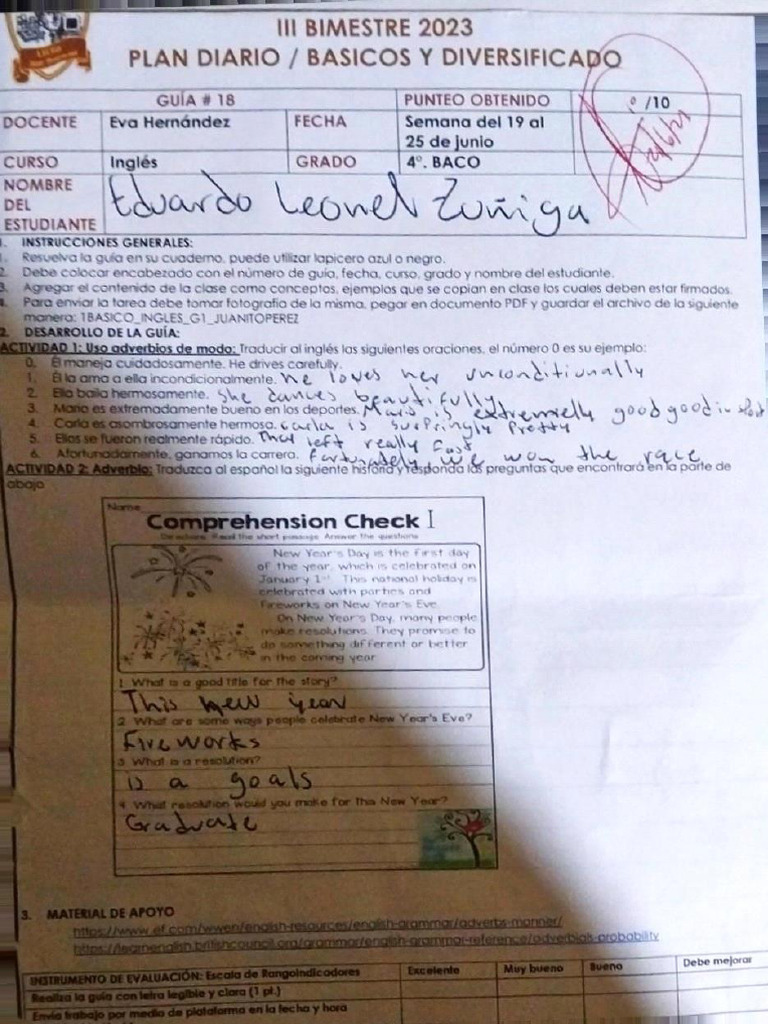 III BIMESTRE 2023
PLAN DIARIO / BASICOS Y DIVERSIFICADO
GUÍA # 18 PUNTEO OBTENIDO /10
DOCENTE Eva Hernández FECHA Semana del 19 al
25 de junio
CURSO Inglés GRADO 4º. BACO
NOMBRE
DEL
ESTUDIANTE Eduardo Leonel Zuñiga
1. INSTRUCCIONES GENERALES:
1. Resuelva la guía en su cuaderno, puede utilizar lapicero azul o negro.
2. Debe colocar encabezado con el número de guía, fecha, curso, grado y nombre del estudiante.
3. Agregar el contenido de la clase como conceptos, ejemplos que se copian en clase los cuales deben estar firmados.
4. Para enviar la tarea debe tomar fotografía de la misma, pegar en documento PDF y guardar el archivo de la siguiente
manera: 1BASICO_INGLES_G1_JUANITOPEREZ
2. DESARROLLO DE LA GUÍA:
ACTIVIDAD 1: Uso adverbios de modo: Traducir al inglés las siguientes oraciones, el número 0 es su ejemplo:
0. Él maneja cuidadosamente. He drives carefully.
1. Él la ama a ella incondicionalmente. he loves her unconditionally
2. Ella baila hermosamente. She dances beautifully
3. Mario es extremadamente bueno en los deportes. Mario is extremielly good good in
4. Carla es asombrosamente hermosa. carla is surpringly Pretty
5. Ellas se fueron realmente rápido. That left really Fast
6. Afortunadamente, ganamos la carrera. Fortunately we won the race
ACTIVIDAD 2: Adverbio: Traduzca al español la siguiente historia y responda las preguntas que encontrará en la parte de
abajo
Name
Comprehension Check
Directions: Read the short passage. Answer the questions
New Year's Day is the first day
of the year, which is celebrated on
January 1st. This national holiday is
celebrated with parties and
fireworks on New Year's Eve.
On New Year's Day, many people
make resolutions. They promise to
do something different or better
in the coming year
1 What is a good title for the story?
This new year
2 What are some ways people celebrate New Year's Eve?
Fireworks
3 What is a resolution?
is a goals
4 What resolution would you make for this New Year?
Graduate
3. MATERIAL DE APOYO
https://www.ef.com/wwen/english-resources/english-grammar/adverbs-manner/
https://learnenglish.britishcouncil.org/grammar/english-grammar-reference/adverbials-probability
INSTRUMENTO DE EVALUACIÓN: Escala de RangoIndicadores Excelente Muy bueno Bueno Debe mejorar
Realiza la guía con letra legible y clara (1 pt.)
Envía trabajo por medio de plataforma en la fecha y hora